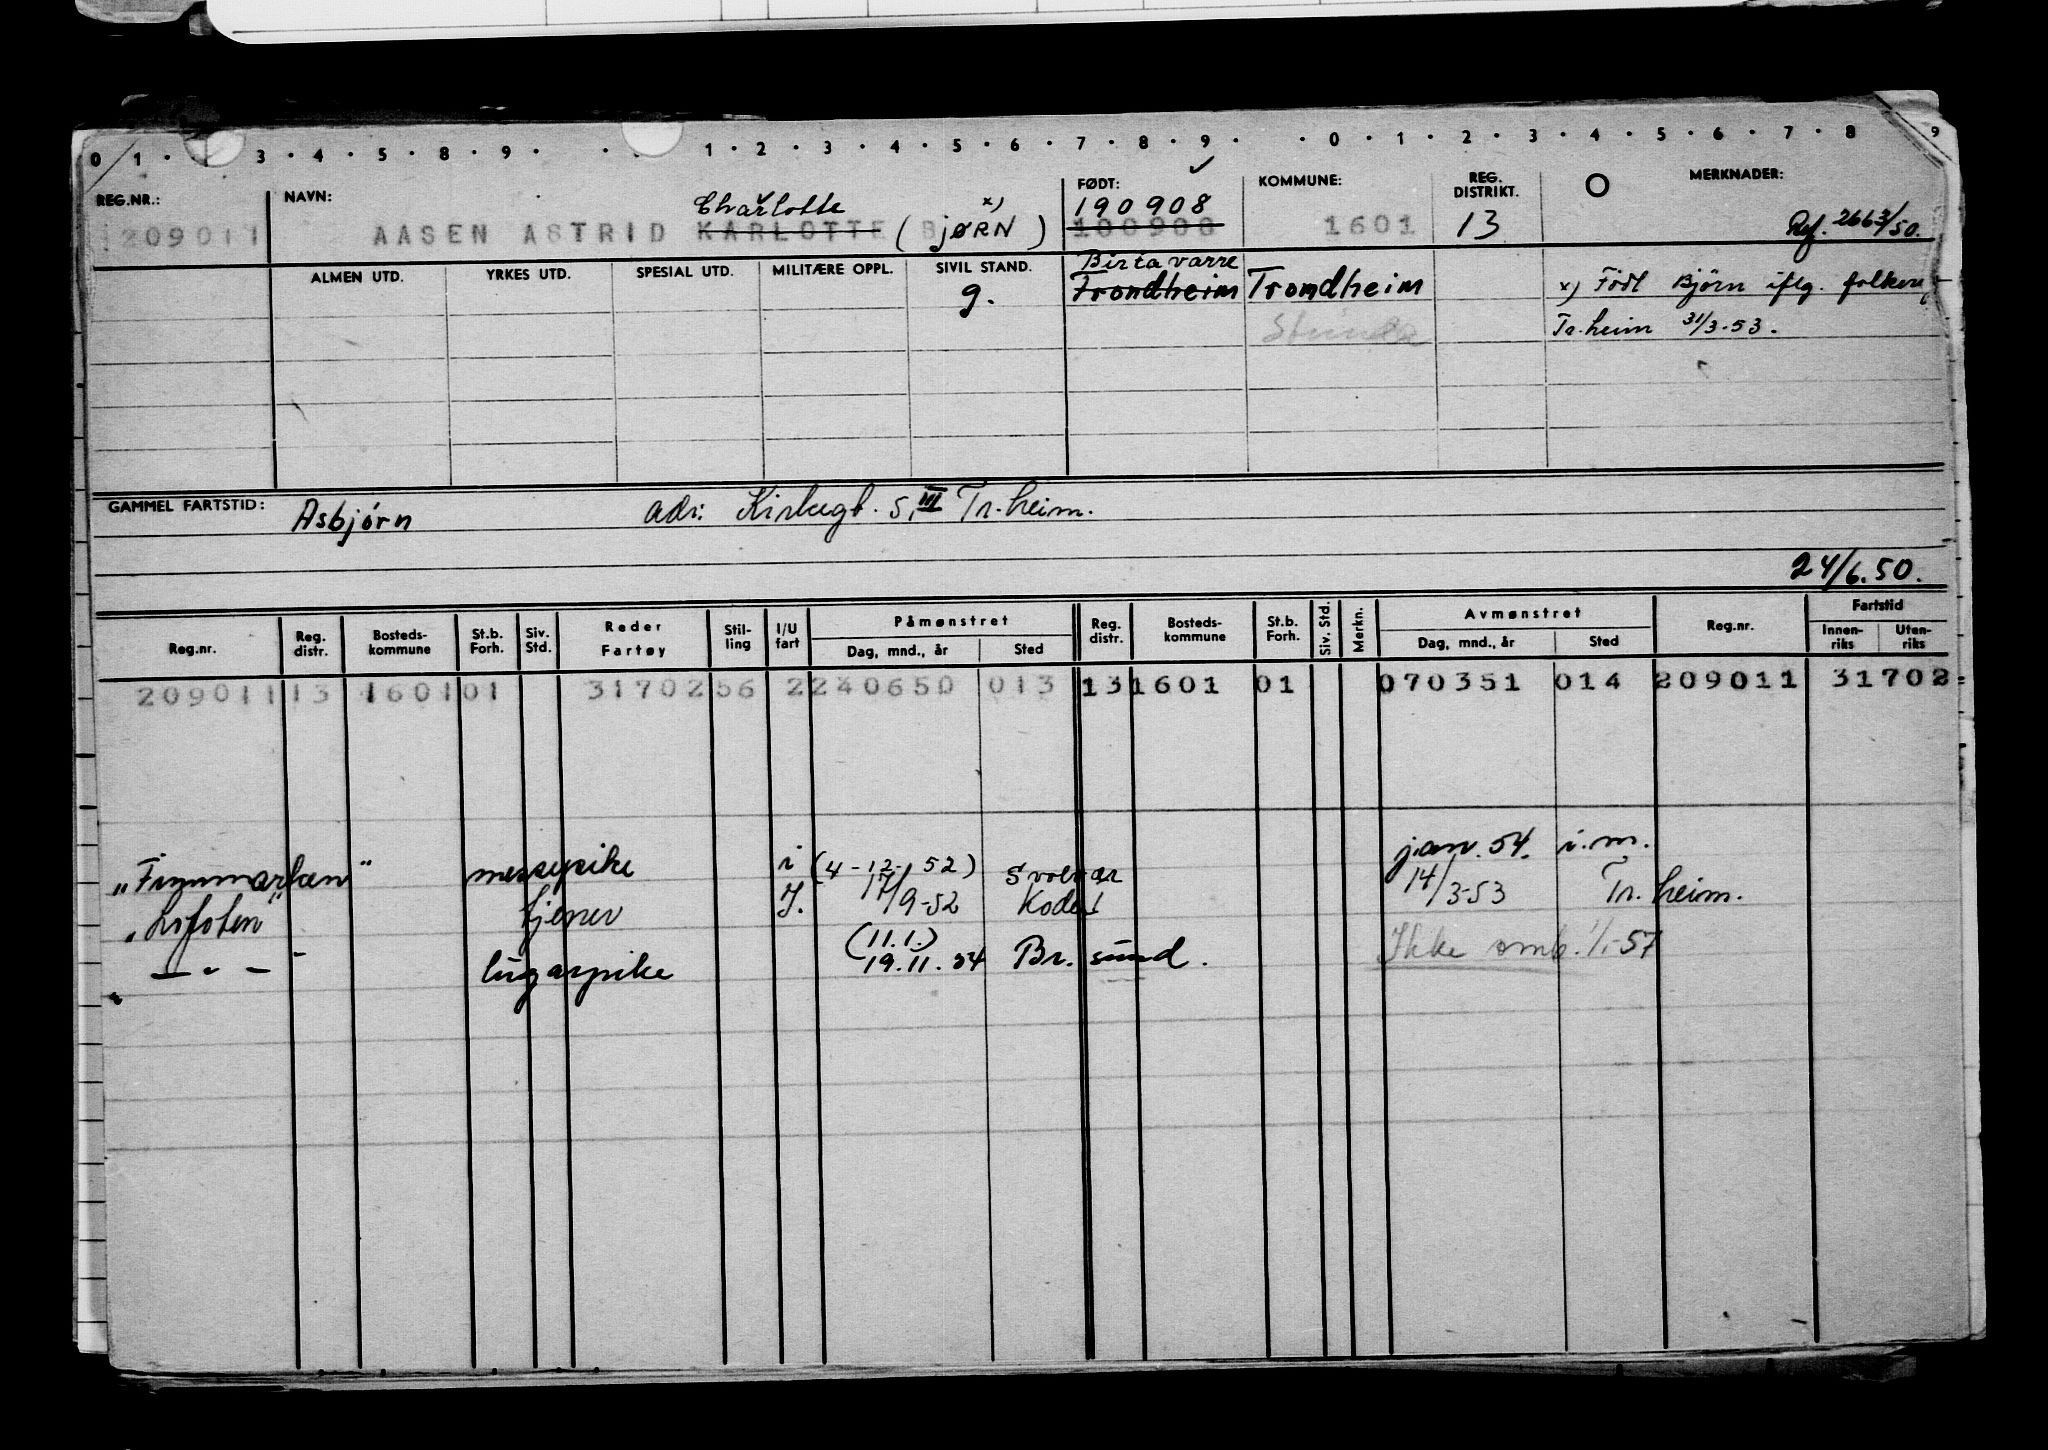 0 1 · 3 · 4 · 5 · 8 · 9 · · 1 · 2 · 3 · 4 · 5 · 6 · 7 · 8 · 9 · · 0 · 1 · 2 · 3 · 4 · 5 · 6 · 7 · 8 9
REG.NR.: NAVN: FØDT: KOMMUNE: REG. DISTRIKT. O MERKNADER:
Charlotte x) 190908
209011 AASEN ASTRID KARLOTTE (BJØRN) 100908 1601 13 Ref. 2663/50.
ALMEN UTD. YRKES UTD. SPESIAL UTD. MILITÆRE OPPL. SIVIL STAND. Birtavarre
g. Trondheim Trondheim x) Født Bjørn iflg. folkereg
Strinda Tr.heim 31/3-53.
GAMMEL FARTSTID: Asbjørn adr: Kirkegt. 5, III Tr.heim.
24/6.50.
Reg.nr. Reg. distr. Bosteds-kommune St.b. Forh. Siv. Std. Reder Fartøy Stil-ling I/U fart Påmønstret Dag, mnd., år Sted Reg. distr. Bosteds-kommune St.b. Forh. Siv. Std. Merkn. Avmønstret Dag, mnd., år Sted Reg.nr. Fartstid Innen-riks Uten-riks
209011 13 1601 01 31702 56 2 240650 013 13 1601 01 070351 014 209011 31702
"Finnmarken" messepike i (4-12-52) Svolvær jan. 54. i.m.
"Lofoten" tjener I. 17/9-52 Kode 1 14/3-53 Tr.heim.
— " — lugarpike (11.1.) 19.11.54 Br.sund. Ikke omb. 1/1-57